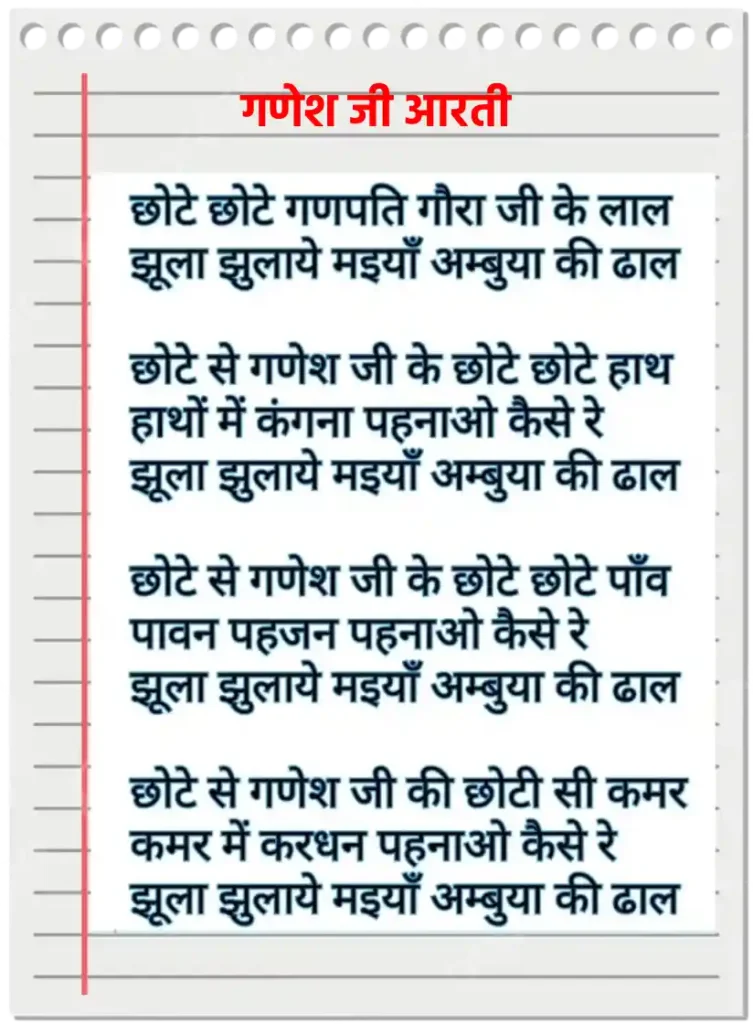 गणेश जी आरती
छोटे छोटे गणपति गौरा जी के लाल
झूला झुलाये मइयाँ अम्बुया की ढाल
छोटे से गणेश जी के छोटे छोटे हाथ
हाथों में कंगना पहनाओ कैसे रे
झूला झुलाये मइयाँ अम्बुया की ढाल
छोटे से गणेश जी के छोटे छोटे पाँव
पावन पहजन पहनाओ कैसे रे
झूला झुलाये मइयाँ अम्बुया की ढाल
छोटे से गणेश जी की छोटी सी कमर
कमर में करधन पहनाओ कैसे रे
झूला झुलाये मइयाँ अम्बुया की ढाल